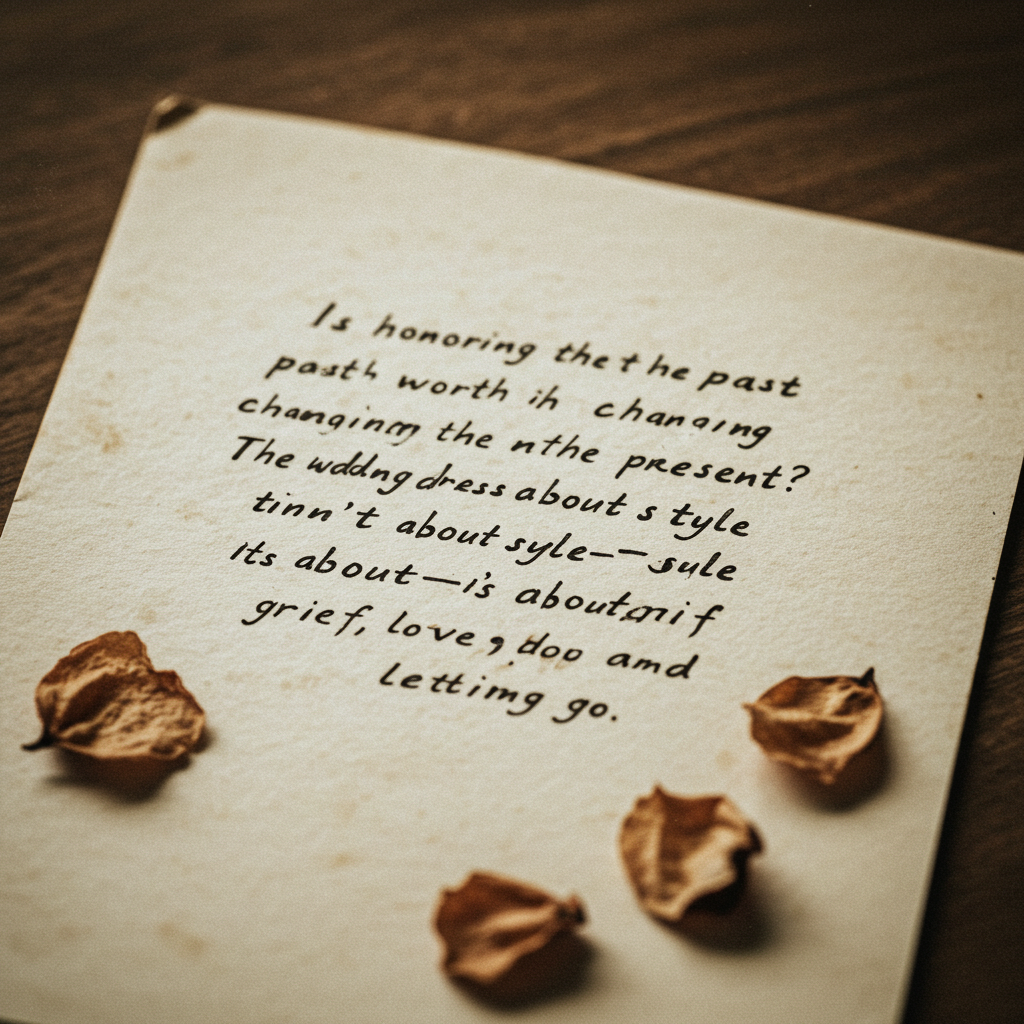 Is honoring thet he past
pasth worth ih changing
changinng the nthe present?
The wddng dress about s tyle
tinn't about syle—— sule
its about—i's about gnif
grief, love, doo amd
lettimg go.